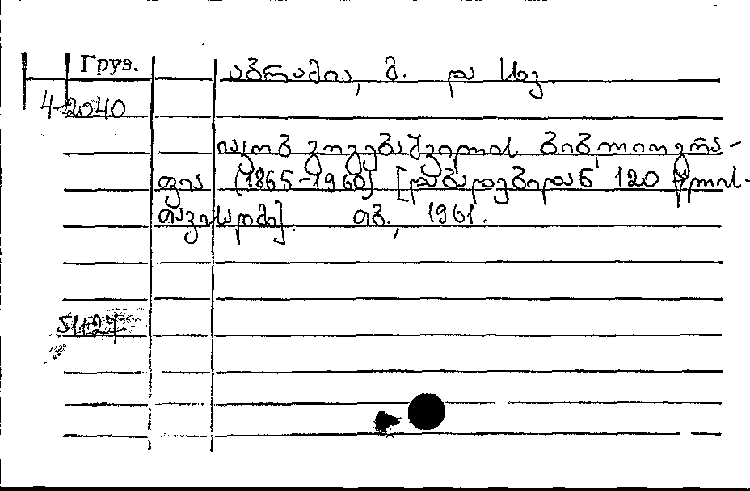 Груз.
აბრამია, გ. და სხვ.
4-2040
იაკობ გოგებაშვილის ბიბლიოგრა-
ფია (1865-1960) [დაბადებიდან 120 წლის-
თავისადმი] თბ., 1961.